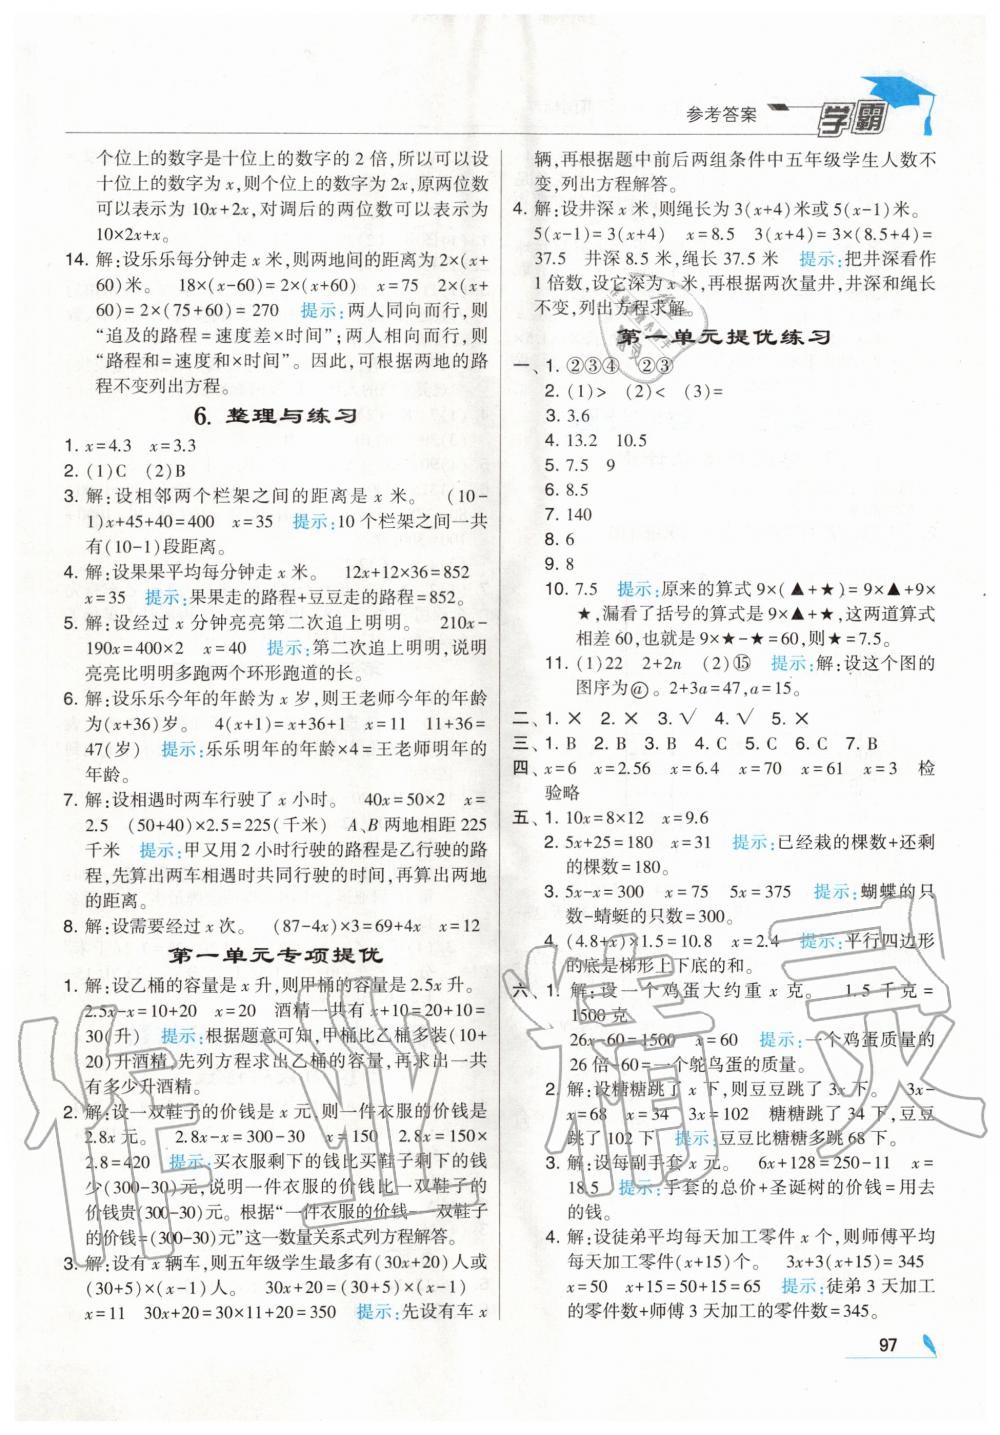 参考答案 学霸
个位上的数字是十位上的数字的 2 倍,所以可以设
十位上的数字为 x,则个位上的数字为 2x,原两位数
可以表示为 10x+2x,对调后的两位数可以表示为
10×2x+x。
14. 解:设乐乐每分钟走 x 米,则两地间的距离为 2×(x+
60)米。 18×(x-60)=2×(x+60) x=75 2×(x+
60)=2×(75+60)=270 提示:两人同向而行,则
“追及的路程=速度差×时间”;两人相向而行,则
“路程和=速度和×时间”。因此,可根据两地的路
程不变列出方程。
6. 整理与练习
1. x=4.3 x=3.3
2. (1)C (2)B
3. 解:设相邻两个栏架之间的距离是 x 米。 (10-
1)x+45+40=400 x=35 提示:10 个栏架之间一共
有(10-1)段距离。
4. 解:设果果平均每分钟走 x 米。 12x+12×36=852
x=35 提示:果果走的路程+豆豆走的路程=852。
5. 解:设经过 x 分钟亮亮第二次追上明明。 210x-
190x=400×2 x=40 提示:第二次追上明明,说明
亮亮比明明多跑两个环形跑道的长。
6. 解:设乐乐今年的年龄为 x 岁,则王老师今年的年龄
为(x+36)岁。 4(x+1)=x+36+1 x=11 11+36=
47(岁) 提示:乐乐明年的年龄×4=王老师明年的
年龄。
7. 解:设相遇时两车行驶了 x 小时。 40x=50×2 x=
2.5 (50+40)×2.5=225(千米) A、B 两地相距 225
千米 提示:甲又用 2 小时行驶的路程是乙行驶的路
程,先算出两车相遇时共同行驶的时间,再算出两地
的距离。
8. 解:设需要经过 x 次。 (87-4x)×3=69+4x x=12
第一单元专项提优
1. 解:设乙桶的容量是 x 升,则甲桶的容量是 2.5x 升。
2.5x-x=10+20 x=20 酒精一共有 x+10=20+10=
30(升) 提示:根据题意可知,甲桶比乙桶多装(10+
20)升酒精,先列方程求出乙桶的容量,再求出一共
有多少升酒精。
2. 解:设一双鞋子的价钱是 x 元,则一件衣服的价钱是
2.8x 元。 2.8x-x=300-30 x=150 2.8x=150×
2.8=420 提示:买衣服剩下的钱比买鞋子剩下的钱
少(300-30)元,说明一件衣服的价钱比一双鞋子的
价钱贵(300-30)元。根据“一件衣服的价钱-一双鞋子
的价钱=(300-30)元”这一数量关系式列方程解答。
3. 解:设有 x 辆车,则五年级学生最多有(30x+20)人或
(30+5)×(x-1)人。 30x+20=(30+5)×(x-1)
x=11 30x+20=30×11+20=350 提示:先设有车 x
辆,再根据题中前后两组条件中五年级学生人数不
变,列出方程解答。
4. 解:设井深 x 米,则绳长为 3(x+4)米或 5(x-1)米。
5(x-1)=3(x+4) x=8.5 3(x+4)=3×(8.5+4)=
37.5 井深 8.5 米,绳长 37.5 米 提示:把井深看作
1 倍数,设它深为 x 米,再根据两次量井,井深和绳长
不变,列出方程求解。
第一单元提优练习
一、1. ②③④ ②③
2. (1)> (2)< (3)=
3. 3.6
4. 13.2 10.5
5. 7.5 9
6. 8.5
7. 140
8. 6
9. 8
10. 7.5 提示:原来的算式 9×(▲+★)=9×▲+9×
★,漏看了括号的算式是 9×▲+★,这两道算式
相差 60,也就是 9×★-★=60,则★=7.5。
11. (1)22 2+2n (2)⑮ 提示:解:设这个图的
图序为ⓐ。2+3a=47,a=15。
二、1. × 2. × 3. √ 4. √ 5. ×
三、1. B 2. B 3. B 4. C 5. C 6. C 7. B
四、x=6 x=2.56 x=6.4 x=70 x=61 x=3 检
验略
五、1. 10x=8×12 x=9.6
2. 5x+25=180 x=31 提示:已经栽的棵数+还剩
的棵数=180。
3. 5x-x=300 x=75 5x=375 提示:蝴蝶的只
数-蜻蜓的只数=300。
4. (4.8+x)×1.5=10.8 x=2.4 提示:平行四边形
的底是梯形上下底的和。
六、1. 解:设一个鸡蛋大约重 x 克。 1.5 千克=
1500 克
26x-60=1500 x=60 提示:一个鸡蛋质量的
26 倍-60=一个鸵鸟蛋的质量。
2. 解:设糖糖跳了 x 下,则豆豆跳了 3x 下。 3x-
x=68 x=34 3x=102 糖糖跳了 34 下,豆豆
跳了 102 下 提示:豆豆比糖糖多跳 68 下。
3. 解:设每副手套 x 元。 6x+128=250-11 x=
18.5 提示:手套的总价+圣诞树的价钱=用去
的钱。
4. 解:设徒弟平均每天加工零件 x 个,则师傅平均
每天加工零件(x+15)个。 3x+3(x+15)=345
x=50 x+15=50+15=65 提示:徒弟 3 天加工
的零件数+师傅 3 天加工的零件数=345。
97
作业精灵